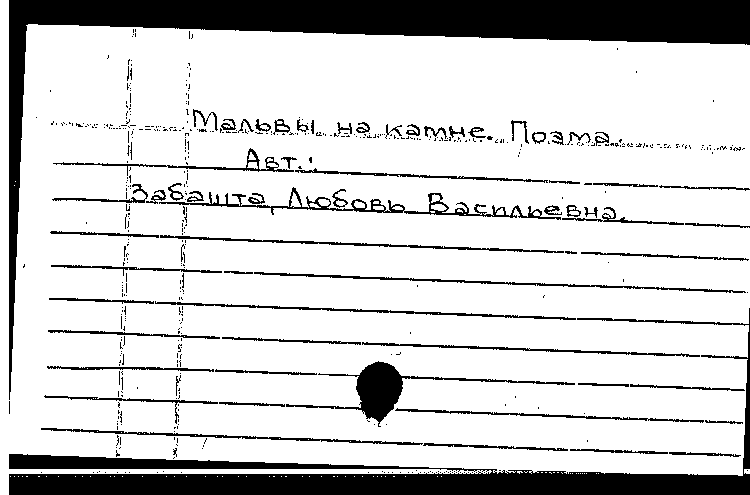 Мальвы на камне. Поэма.
Авт.:
Забашта, Любовь Васильевна.